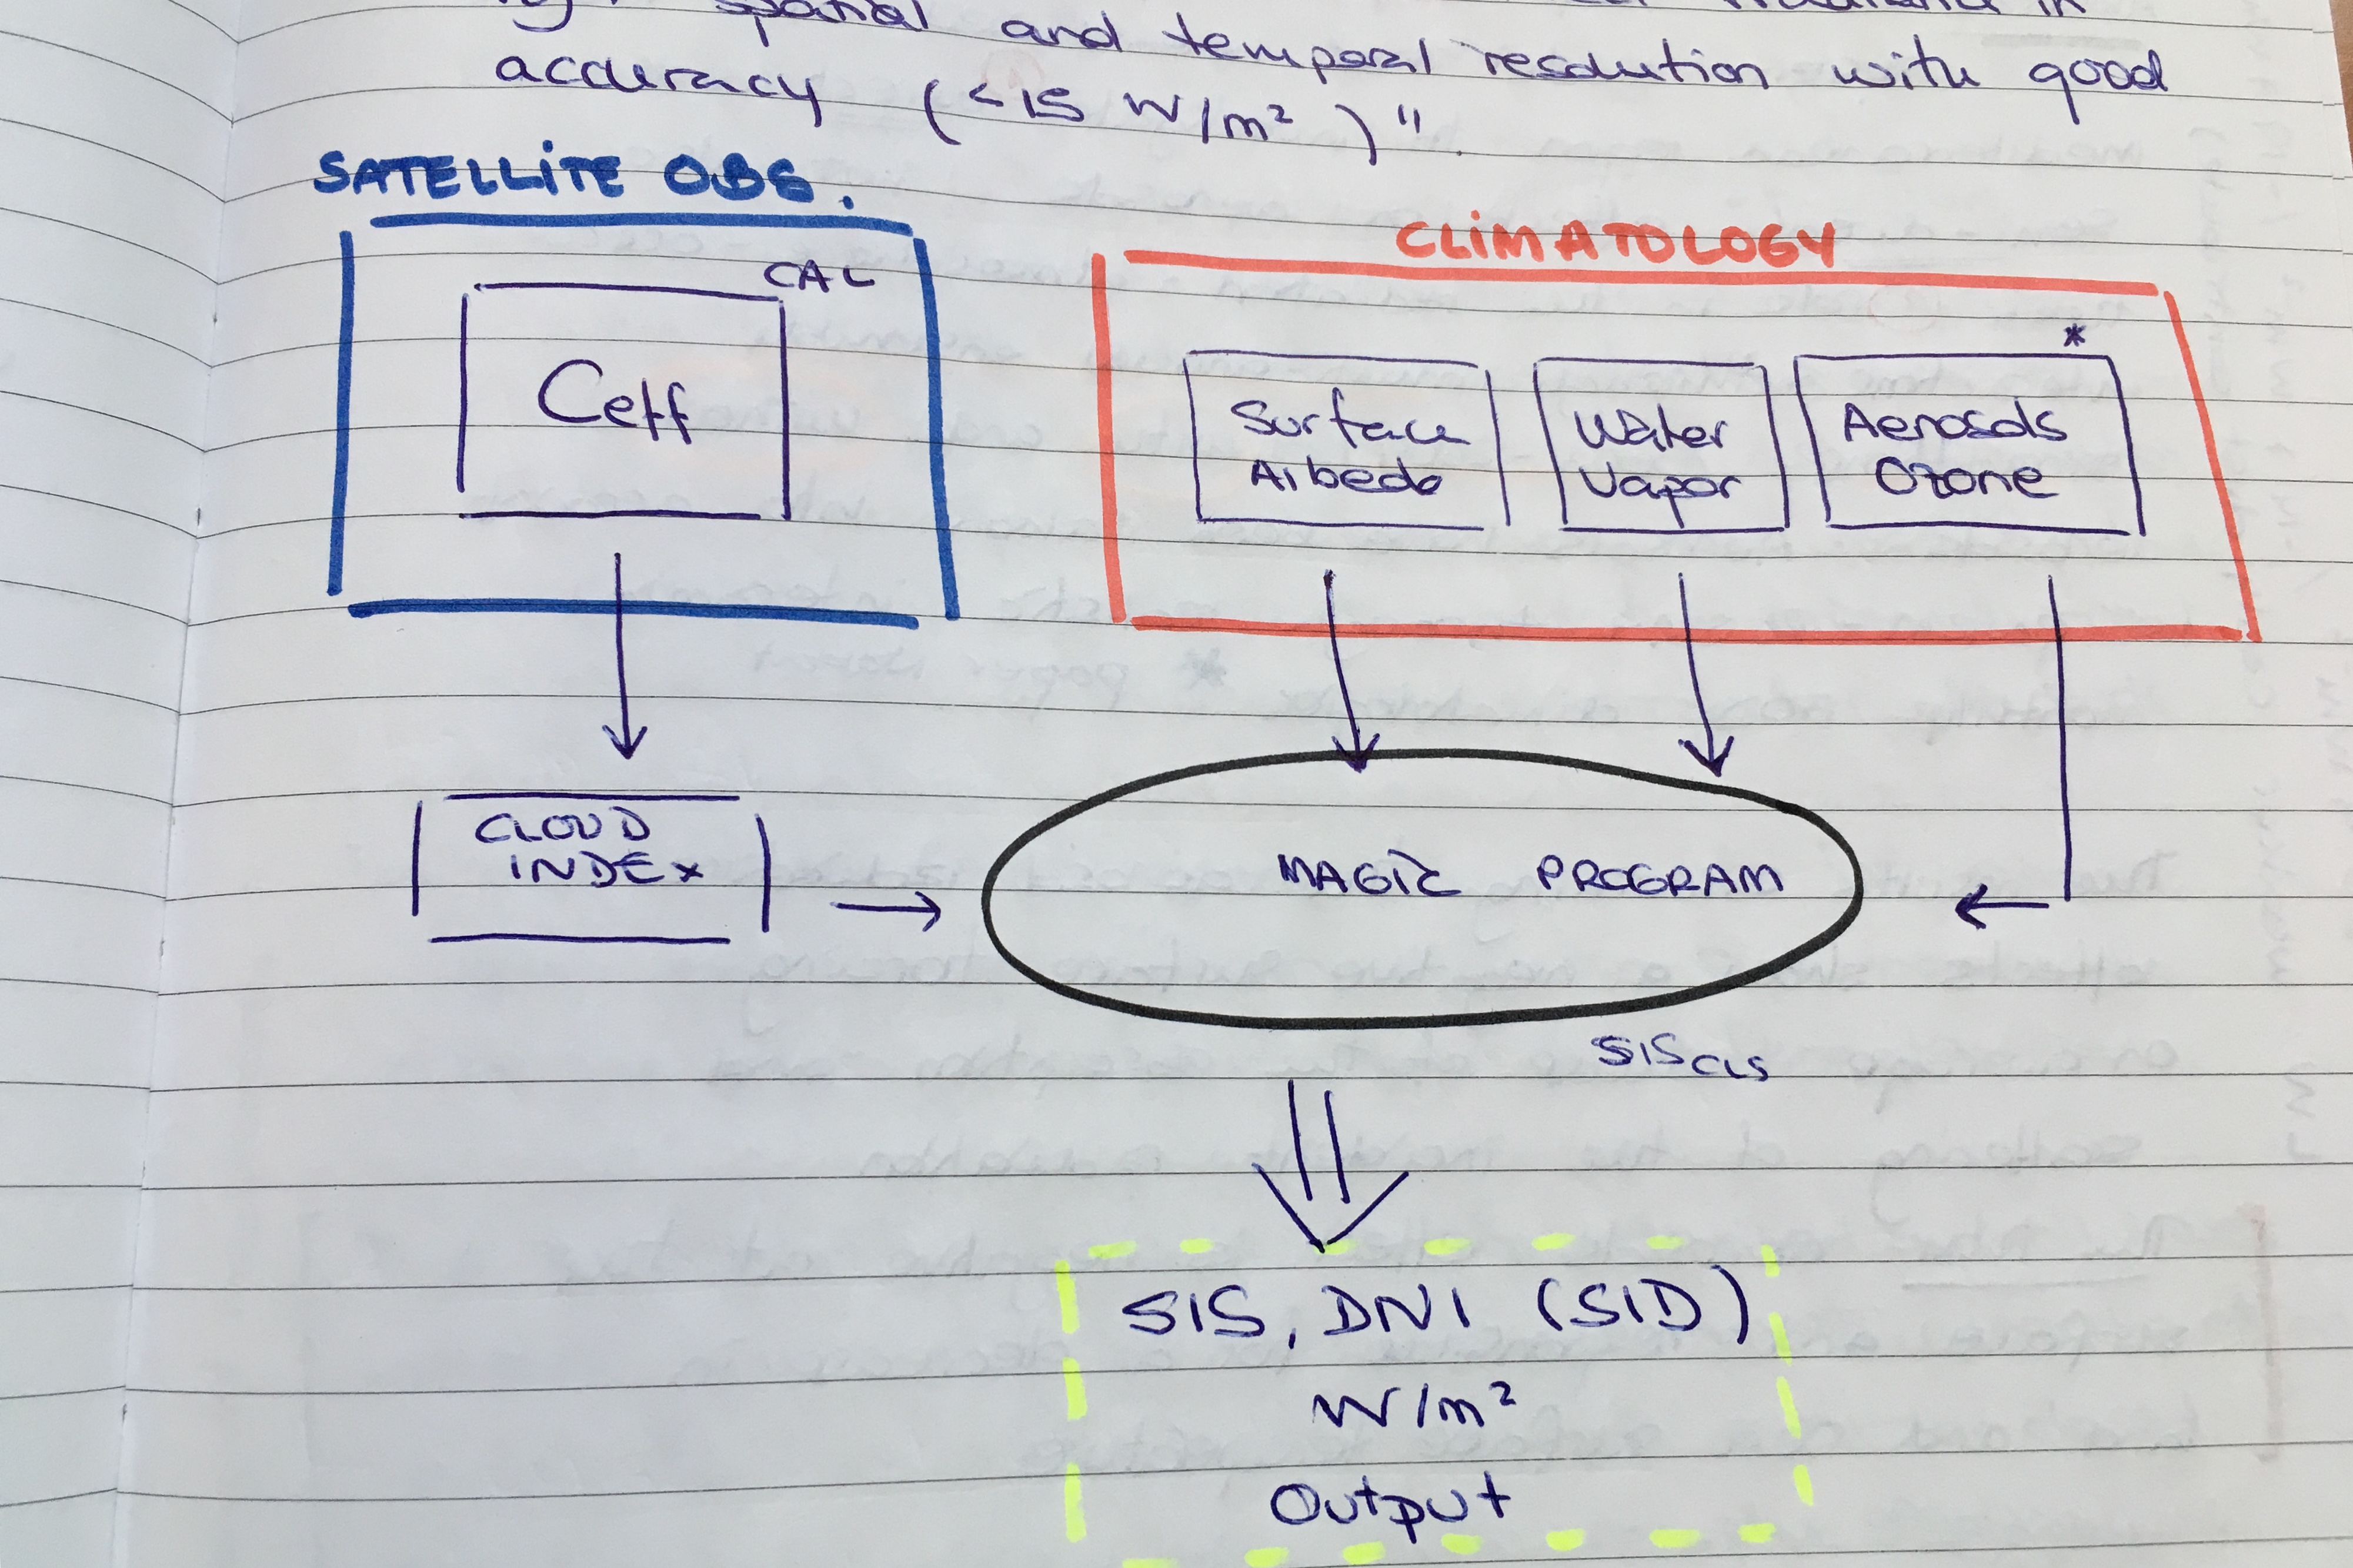 spatial and temporal resolution with good
accuracy (<15 W/m² )".
SATELLITE OBS.
CAL
Ceff
CLIMATOLOGY
*
Surface
Albedo
Water
Vapor
Aerosols
Ozone
CLOUD
INDEX
MAGIC PROGRAM
SIS CLS
SIS, DNI (SID)
W/m²
Output